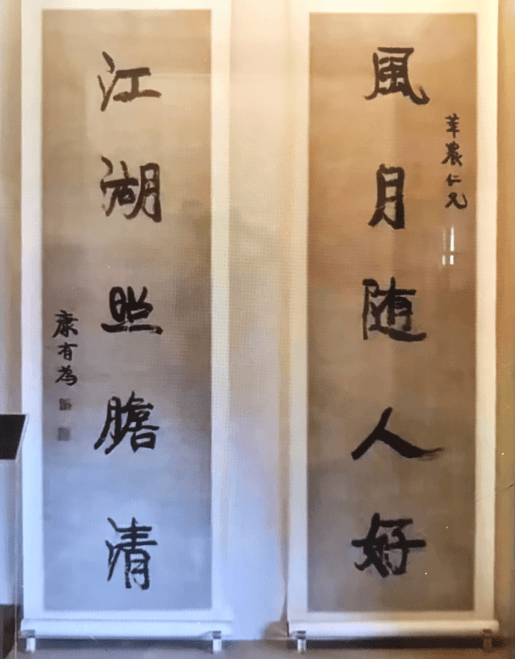 風月随人好
莘農仁兄
江湖照膽清
康有為